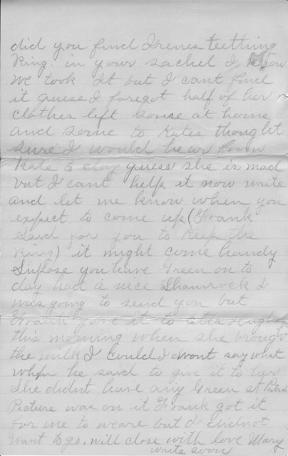 did you find Irenes teething
Ring in your sachel I know
we took it but I cant find
it guess I forgot half of her
clothes left some at home
and some to Katies thought
sure I would hear from
Kate to day guess she is mad
but I cant help it now write
and let me know when you
expect to come up (Frank
said for you to keep the
Ring) it might come handy
Supose you have Green on to
day had a nice Shamrock I
was going to send you but
Frank gave it to
this morning when she brought
the milk I could wont say what
when he said to give it to her
She didnt have any Green at
Picture was on it Frank got it
for me to weare but I didnot
want to go. will close with love Mary
write soon